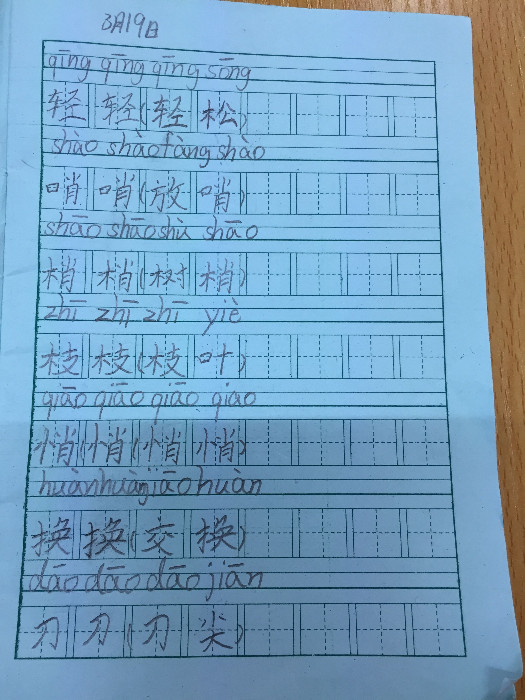 3月19日
qīng qīng qīng sōng
轻 轻(轻 松)
shào shào fàng shào
哨 哨(放 哨)
shāo shāo shù shāo
梢 梢(树 梢)
zhī zhī zhī yiè
枝 枝(枝 叶)
qiāo qiāo qiāo qiao
悄 悄(悄 悄)
huàn huàn jiāo huàn
换 换(交 换)
dāo dāo dāo jiān
刀 刀(刀 尖)